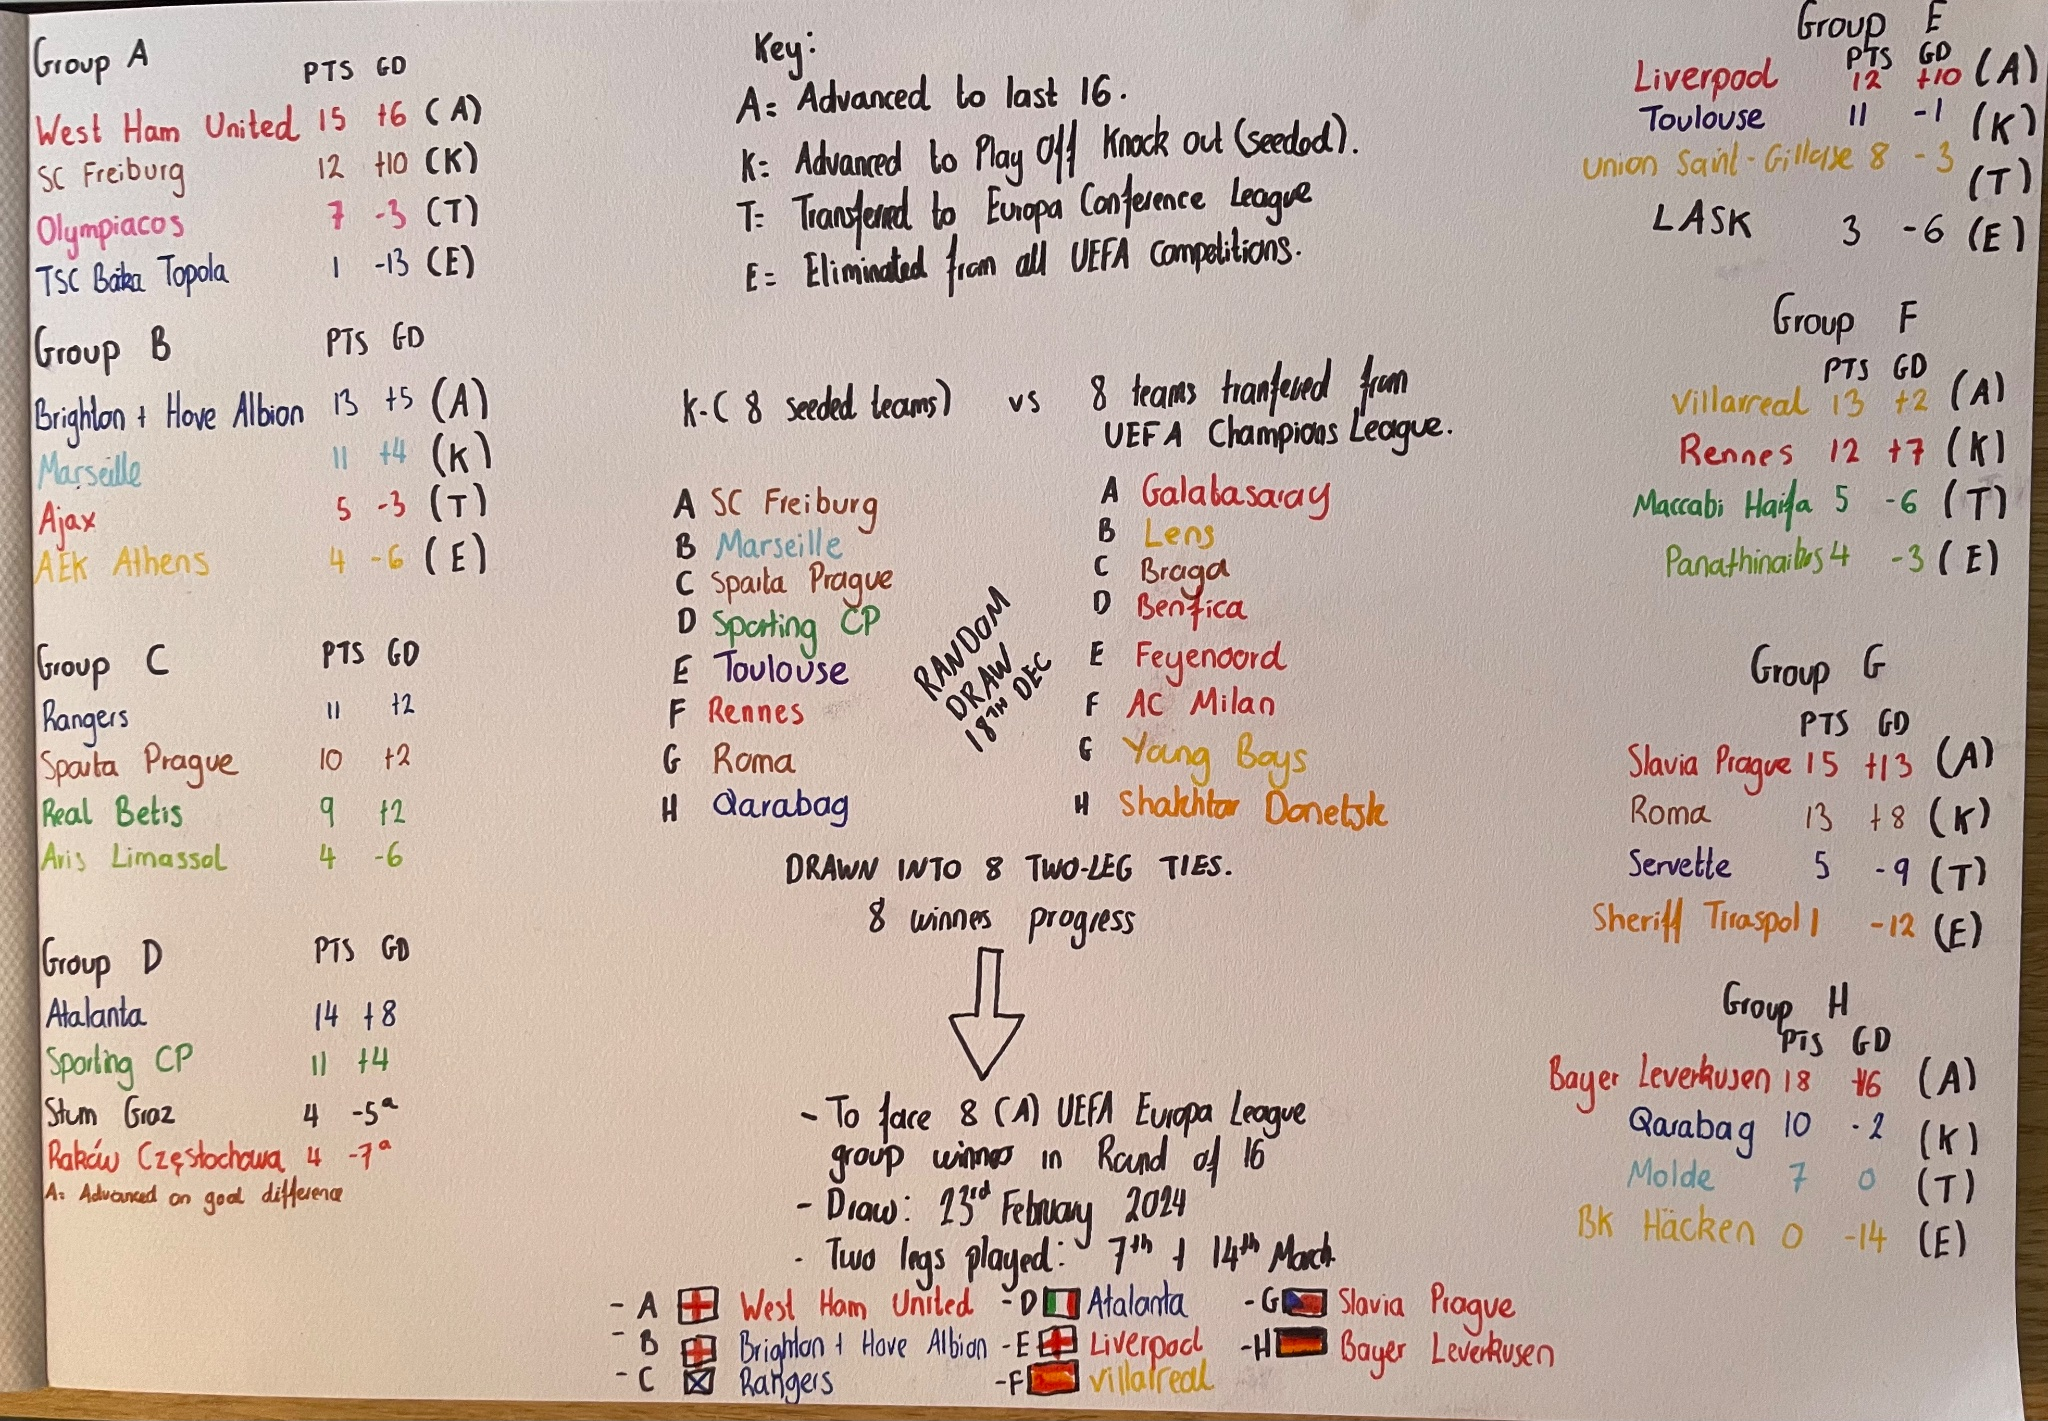 Group A PTS GD
West Ham United 15 +6 (A)
SC Freiburg 12 +10 (K)
Olympiacos 7 -3 (T)
TSC Bačka Topola 1 -13 (E)
Group B PTS GD
Brighton + Hove Albion 13 +5 (A)
Marseille 11 +4 (K)
Ajax 5 -3 (T)
AEK Athens 4 -6 (E)
Group C PTS GD
Rangers 11 +2
Sparta Prague 10 +2
Real Betis 9 +2
Aris Limassol 4 -6
Group D PTS GD
Atalanta 14 +8
Sporting CP 11 +4
Sturm Graz 4 -5ª
Raków Częstochowa 4 -7ª
A= Advanced on goal difference
Key:
A= Advanced to last 16.
K= Advanced to Play Off Knock out (seeded).
T= Transferred to Europa Conference League
E= Eliminated from all UEFA competitions.
K-( 8 seeded teams) vs 8 teams tranfered from
UEFA Champions League.
A SC Freiburg
B Marseille
C Sparta Prague
D Sporting CP
E Toulouse
F Rennes
G Roma
H Qarabag
RANDOM
DRAW
18TH DEC
A Galatasaray
B Lens
C Braga
D Benfica
E Feyenoord
F AC Milan
G Young Boys
H Shakhtar Donetsk
DRAWN INTO 8 TWO-LEG TIES.
8 winnes progress
- To face 8 (A) UEFA Europa League
group winnes in Round of 16
- Draw: 23rd February 2024
- Two legs played: 7th + 14th March
- A West Ham United - D Atalanta - G Slavia Prague
- B Brighton + Hove Albion - E Liverpool - H Bayer Leverkusen
- C Rangers - F Villarreal
Group E
PTS GD
Liverpool 12 +10 (A)
Toulouse 11 -1 (K)
Union Saint-Gilloise 8 -3 (T)
LASK 3 -6 (E)
Group F
PTS GD
Villarreal 13 +2 (A)
Rennes 12 +7 (K)
Maccabi Haifa 5 -6 (T)
Panathinaikos 4 -3 (E)
Group G
PTS GD
Slavia Prague 15 +13 (A)
Roma 13 +8 (K)
Servette 5 -9 (T)
Sheriff Tiraspol 1 -12 (E)
Group H
PTS GD
Bayer Leverkusen 18 +16 (A)
Qarabag 10 -2 (K)
Molde 7 0 (T)
BK Häcken 0 -14 (E)